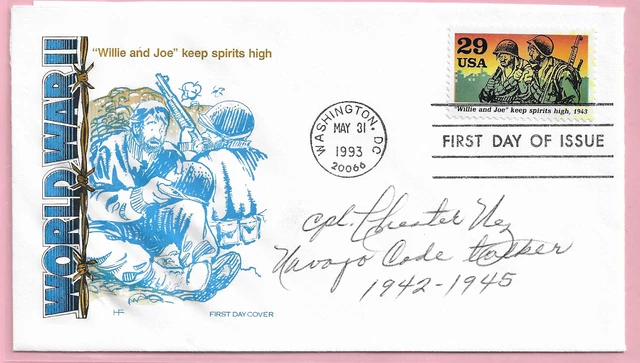 WORLD WAR II
"Willie and Joe" keep spirits high
HF
FIRST DAY COVER
WASHINGTON, DC
MAY 31
1993
20066
29
USA
"Willie and Joe" keep spirits high, 1943
FIRST DAY OF ISSUE
cpl. Chester Nez
Navajo Code talker
1942-1945